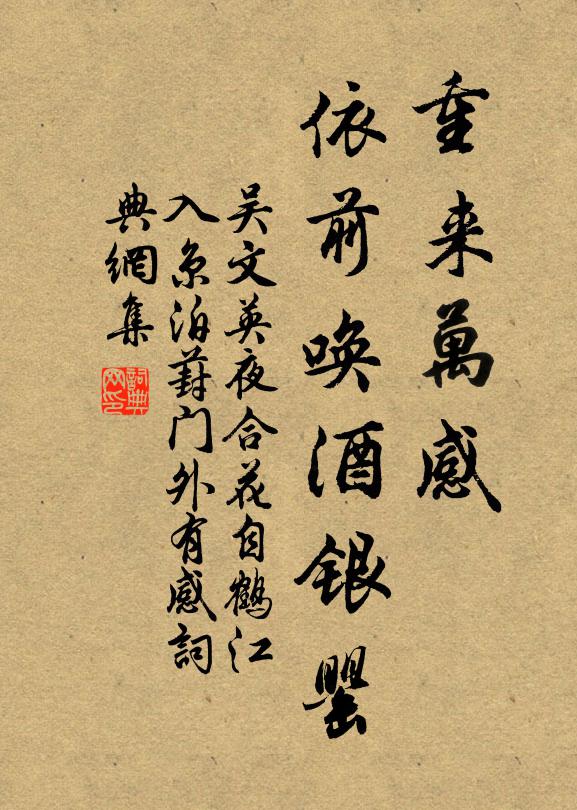 重来萬感
依前唤酒銀罌
吴文英夜合花自鶴江
入京泊葑門外有感詞
典網集
詞典網印